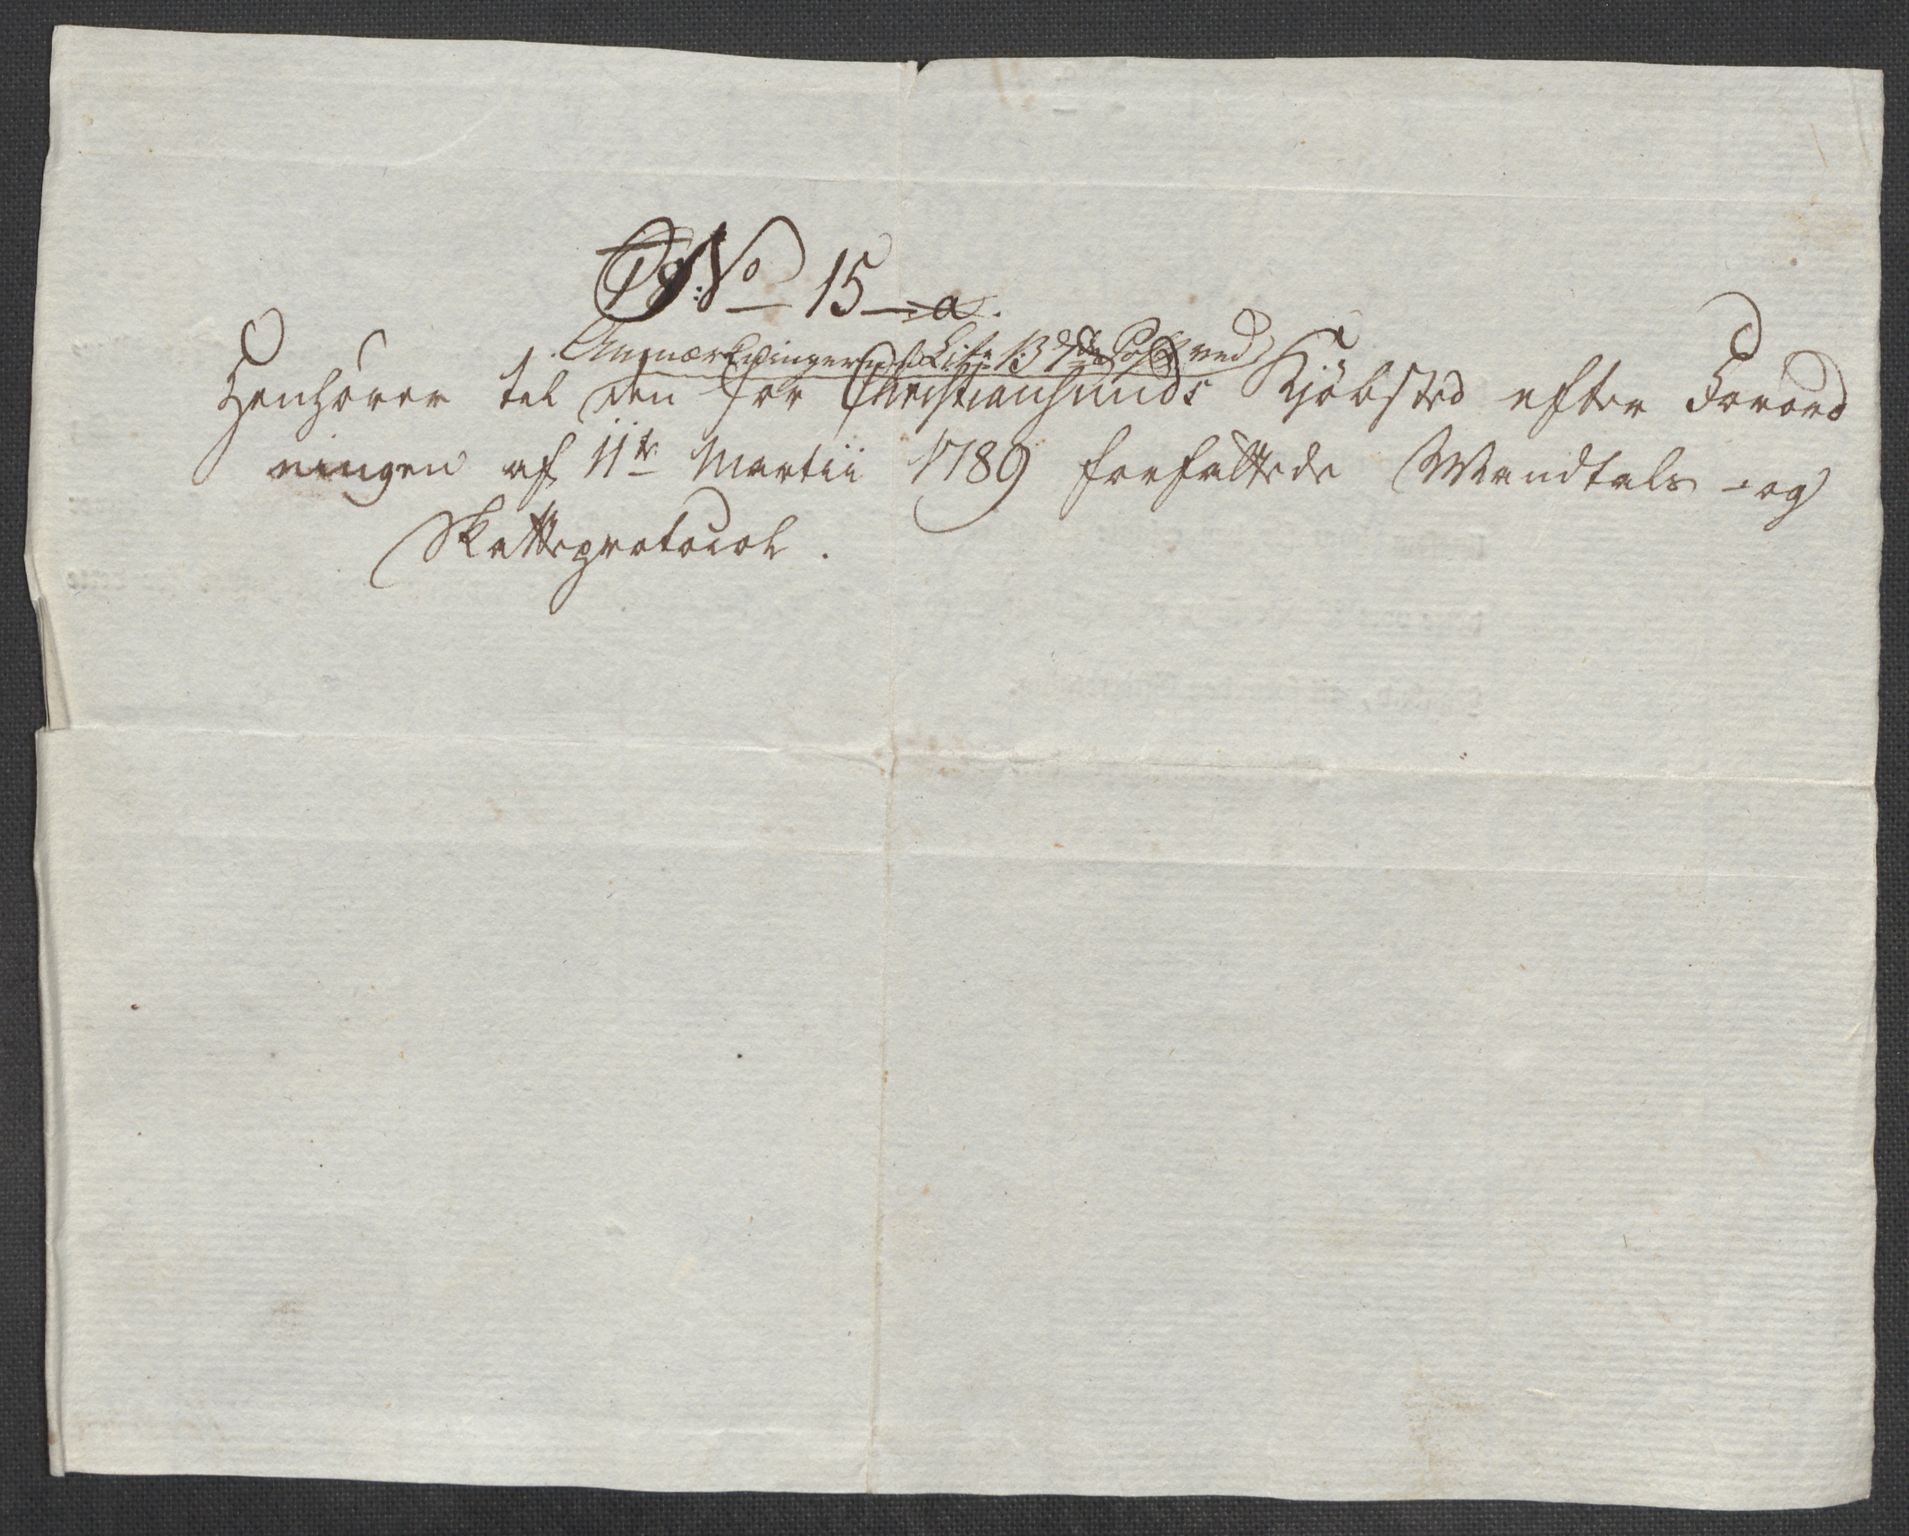 18 No 15 a.
Anmærkninger Litr B 7de Post ved
Henhører til den for Christiansunds Kjöbsted efter Forord
ningen af 11te Martii 1789 forfattede Mandtals- og
Skatteprotocol.